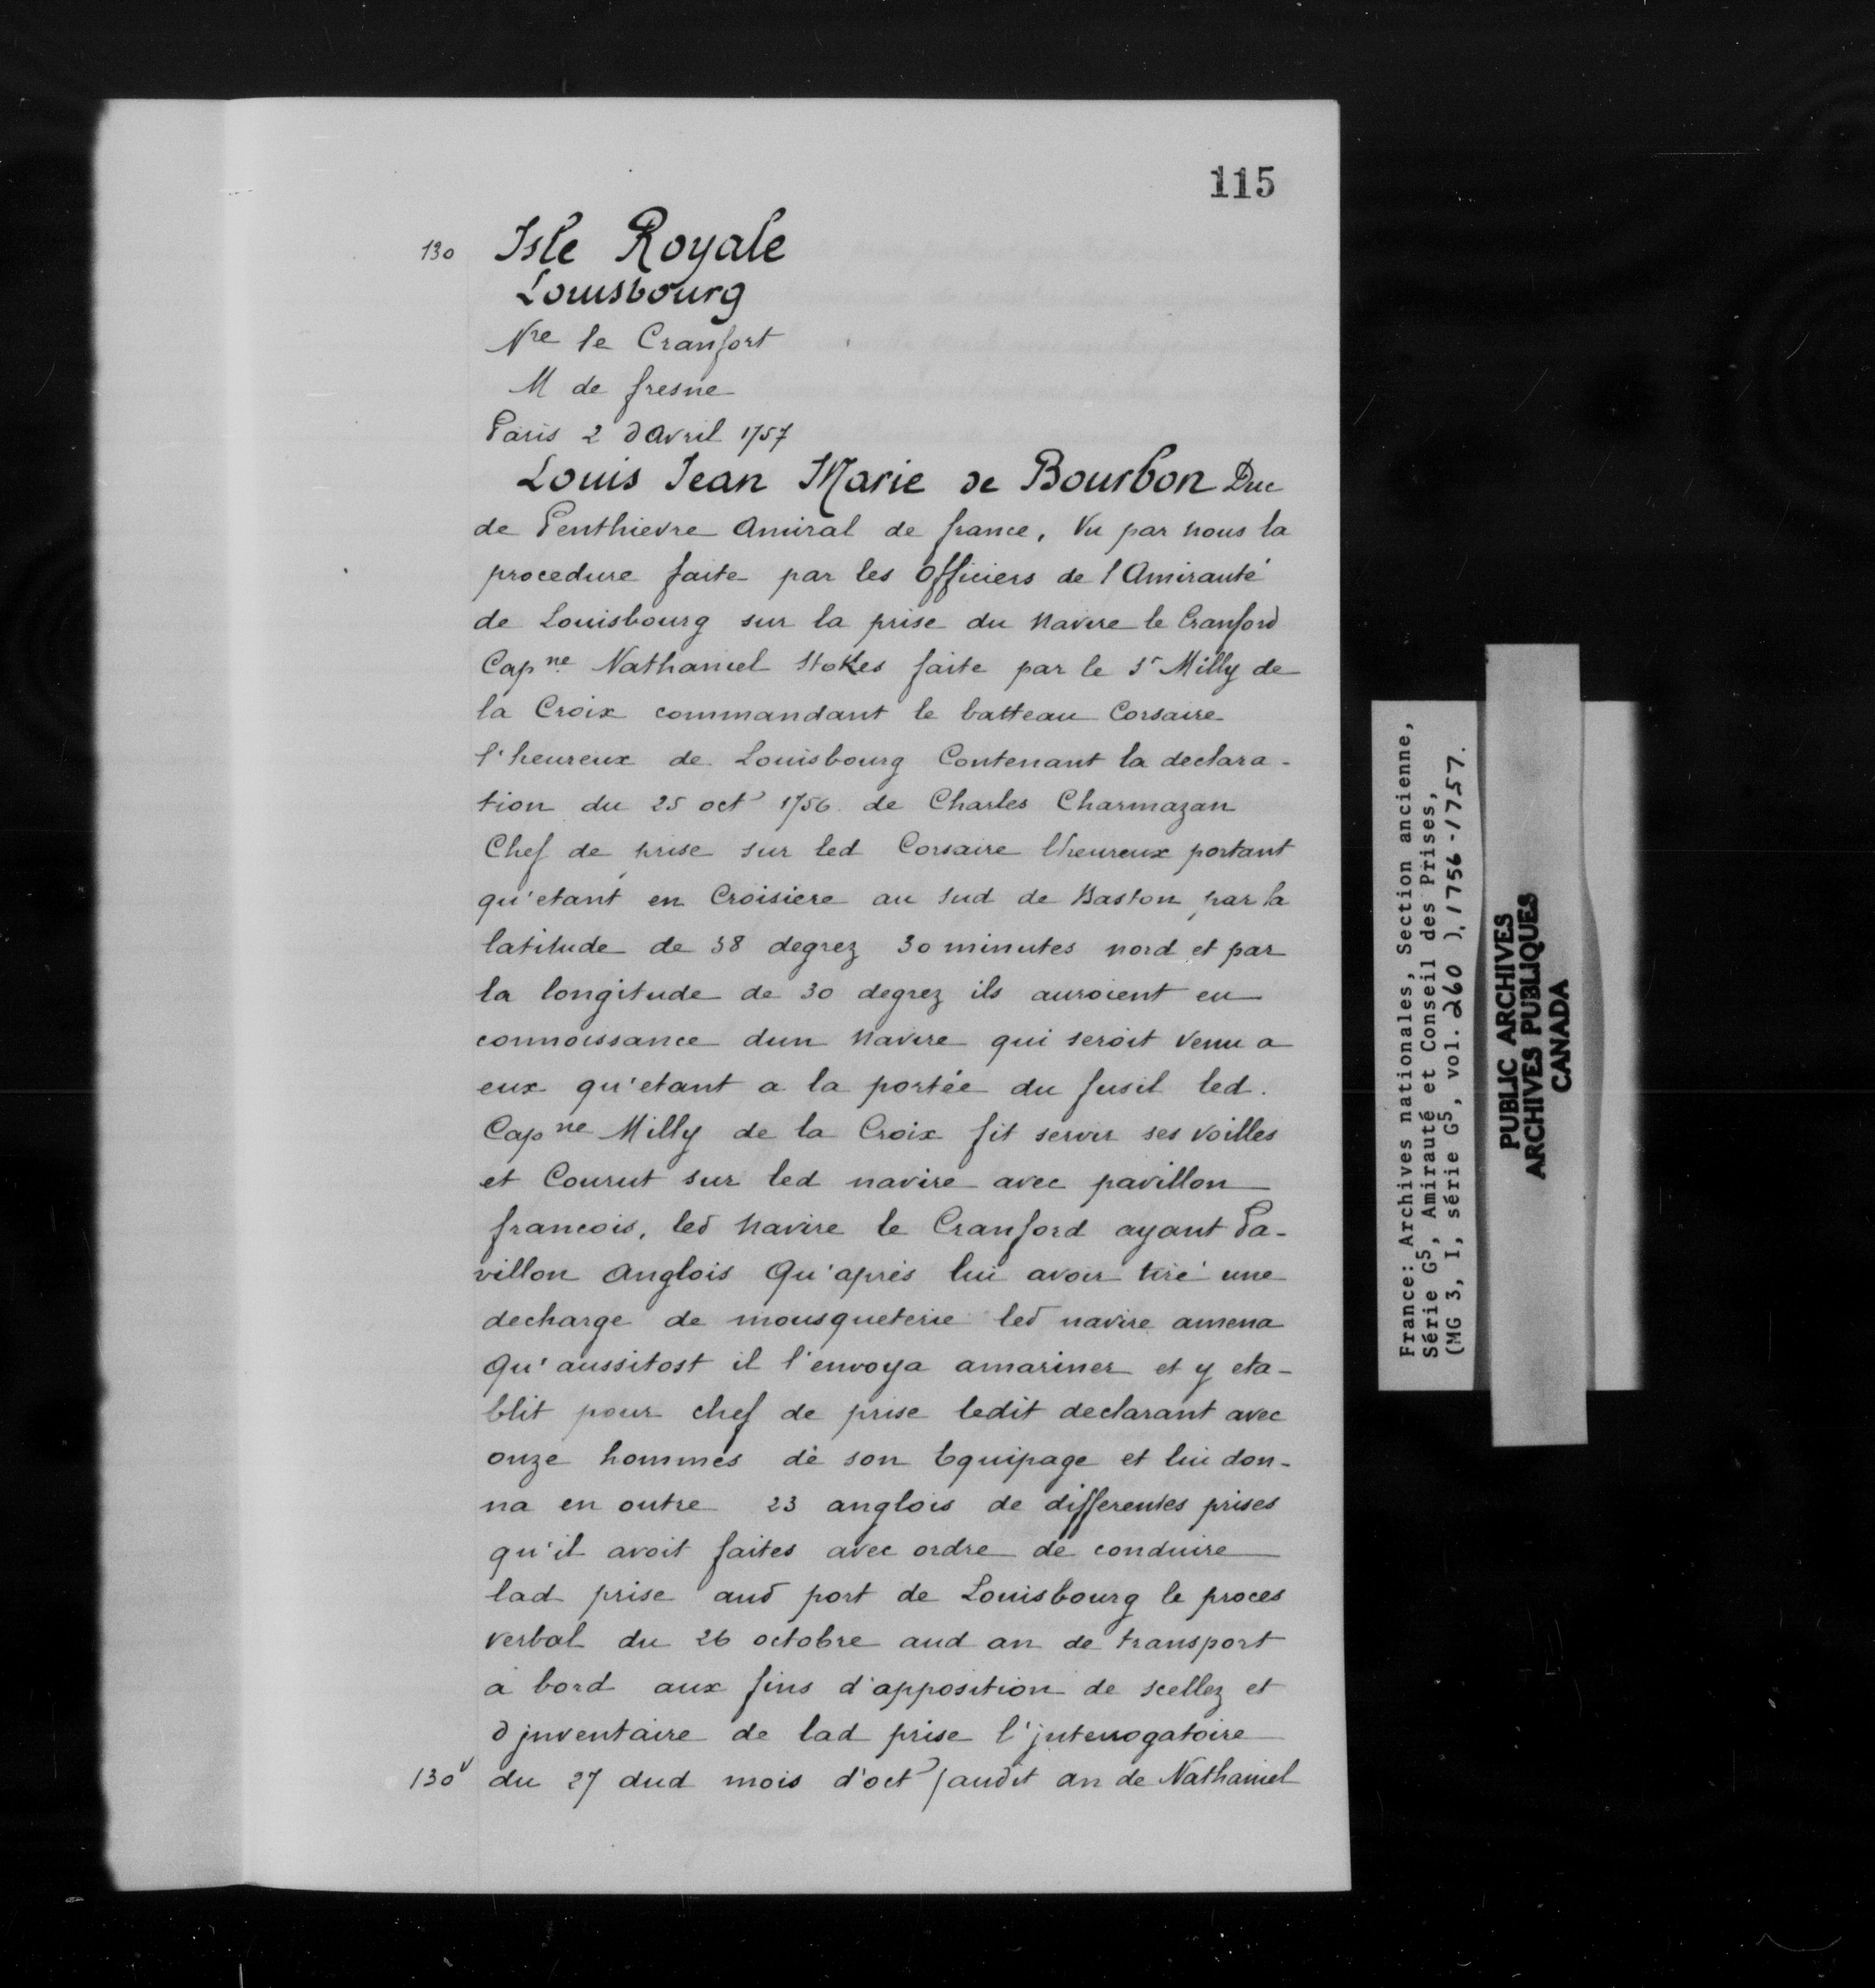 115
130 Isle Royale
Louisbourg
Nre le Cranfort
M de fresne
Paris 2 d Avril 1757
Louis Jean Marie de Bourbon Duc
de Penthievre Amiral de france, Vu par nous la
procedure faite par les Officiers de l'Amirauté
de Louisbourg sur la prise du Navire le Cranford
Capne Nathaniel Stokes faite par le Sr Milly de
la Croix commandant le batteau Corsaire
l'heureux de Louisbourg Contenant la declara-
tion du 25 oct 1756 de Charles Charmazan
Chef de prise sur led Corsaire lheureux portant
qu'etant en Croisiere au Sud de Baston par la
latitude de 38 degrez 30 minutes nord et par
la longitude de 30 degrez ils auroient eu
connoissance dun Navire qui seroit venu a
eux qu'etant a la portée du fusil led.
Capne Milly de la Croix fit servir ses voilles
et Courut sur led navire avec pavillon
francois, led Navire le Cranford ayant Pa-
villon Anglois Qu'aprés lui avoir tiré une
decharge de mousqueterie led navire amena
Qu'aussitost il l'envoya amariner et y eta-
blit pour chef de prise ledit declarant avec
onze hommes de son Equipage et lui don-
na en outre 23 anglois de differentes prises
qu'il avoit faites avec ordre de conduire
lad prise aud port de Louisbourg le proces
verbal du 26 octobre aud an de transport
a bord aux fins d'apposition de scellez et
d jnventaire de lad prise l'jnterrogatoire
130v du 27 dud mois d'oct / audit an de Nathaniel
France: Archives nationales, Section ancienne,
Série G5, Amirauté et Conseil des Prises,
(MG 3, I, série G5, vol. 260 ), 1756-1757.
PUBLIC ARCHIVES
ARCHIVES PUBLIQUES
CANADA